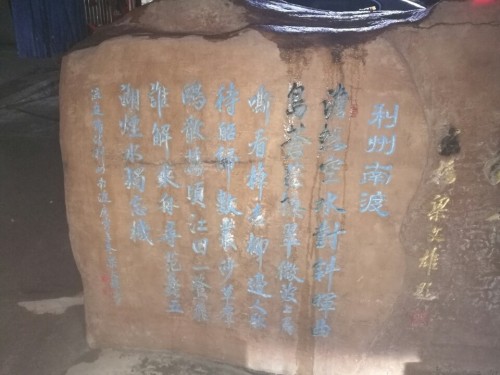 梁文雄題
利州南渡
澹然空水對斜暉曲
島蒼茫接翠微波上馬
嘶看棹去柳邊人歇
待船歸數叢沙草群
鷗散萬頃江田一鷺飛
誰解乘舟尋范蠡五
湖煙水獨忘機